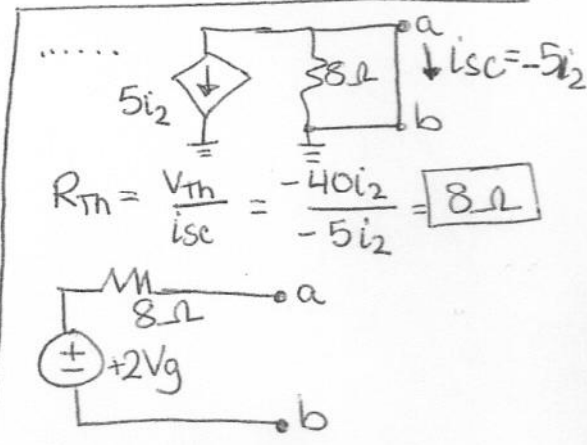 ......
5i₂
8Ω
a
↓ isc=-5i₂
b
R_Th = V_Th / isc = -40i₂ / -5i₂ = 8Ω
8Ω
a
± +2Vg
b